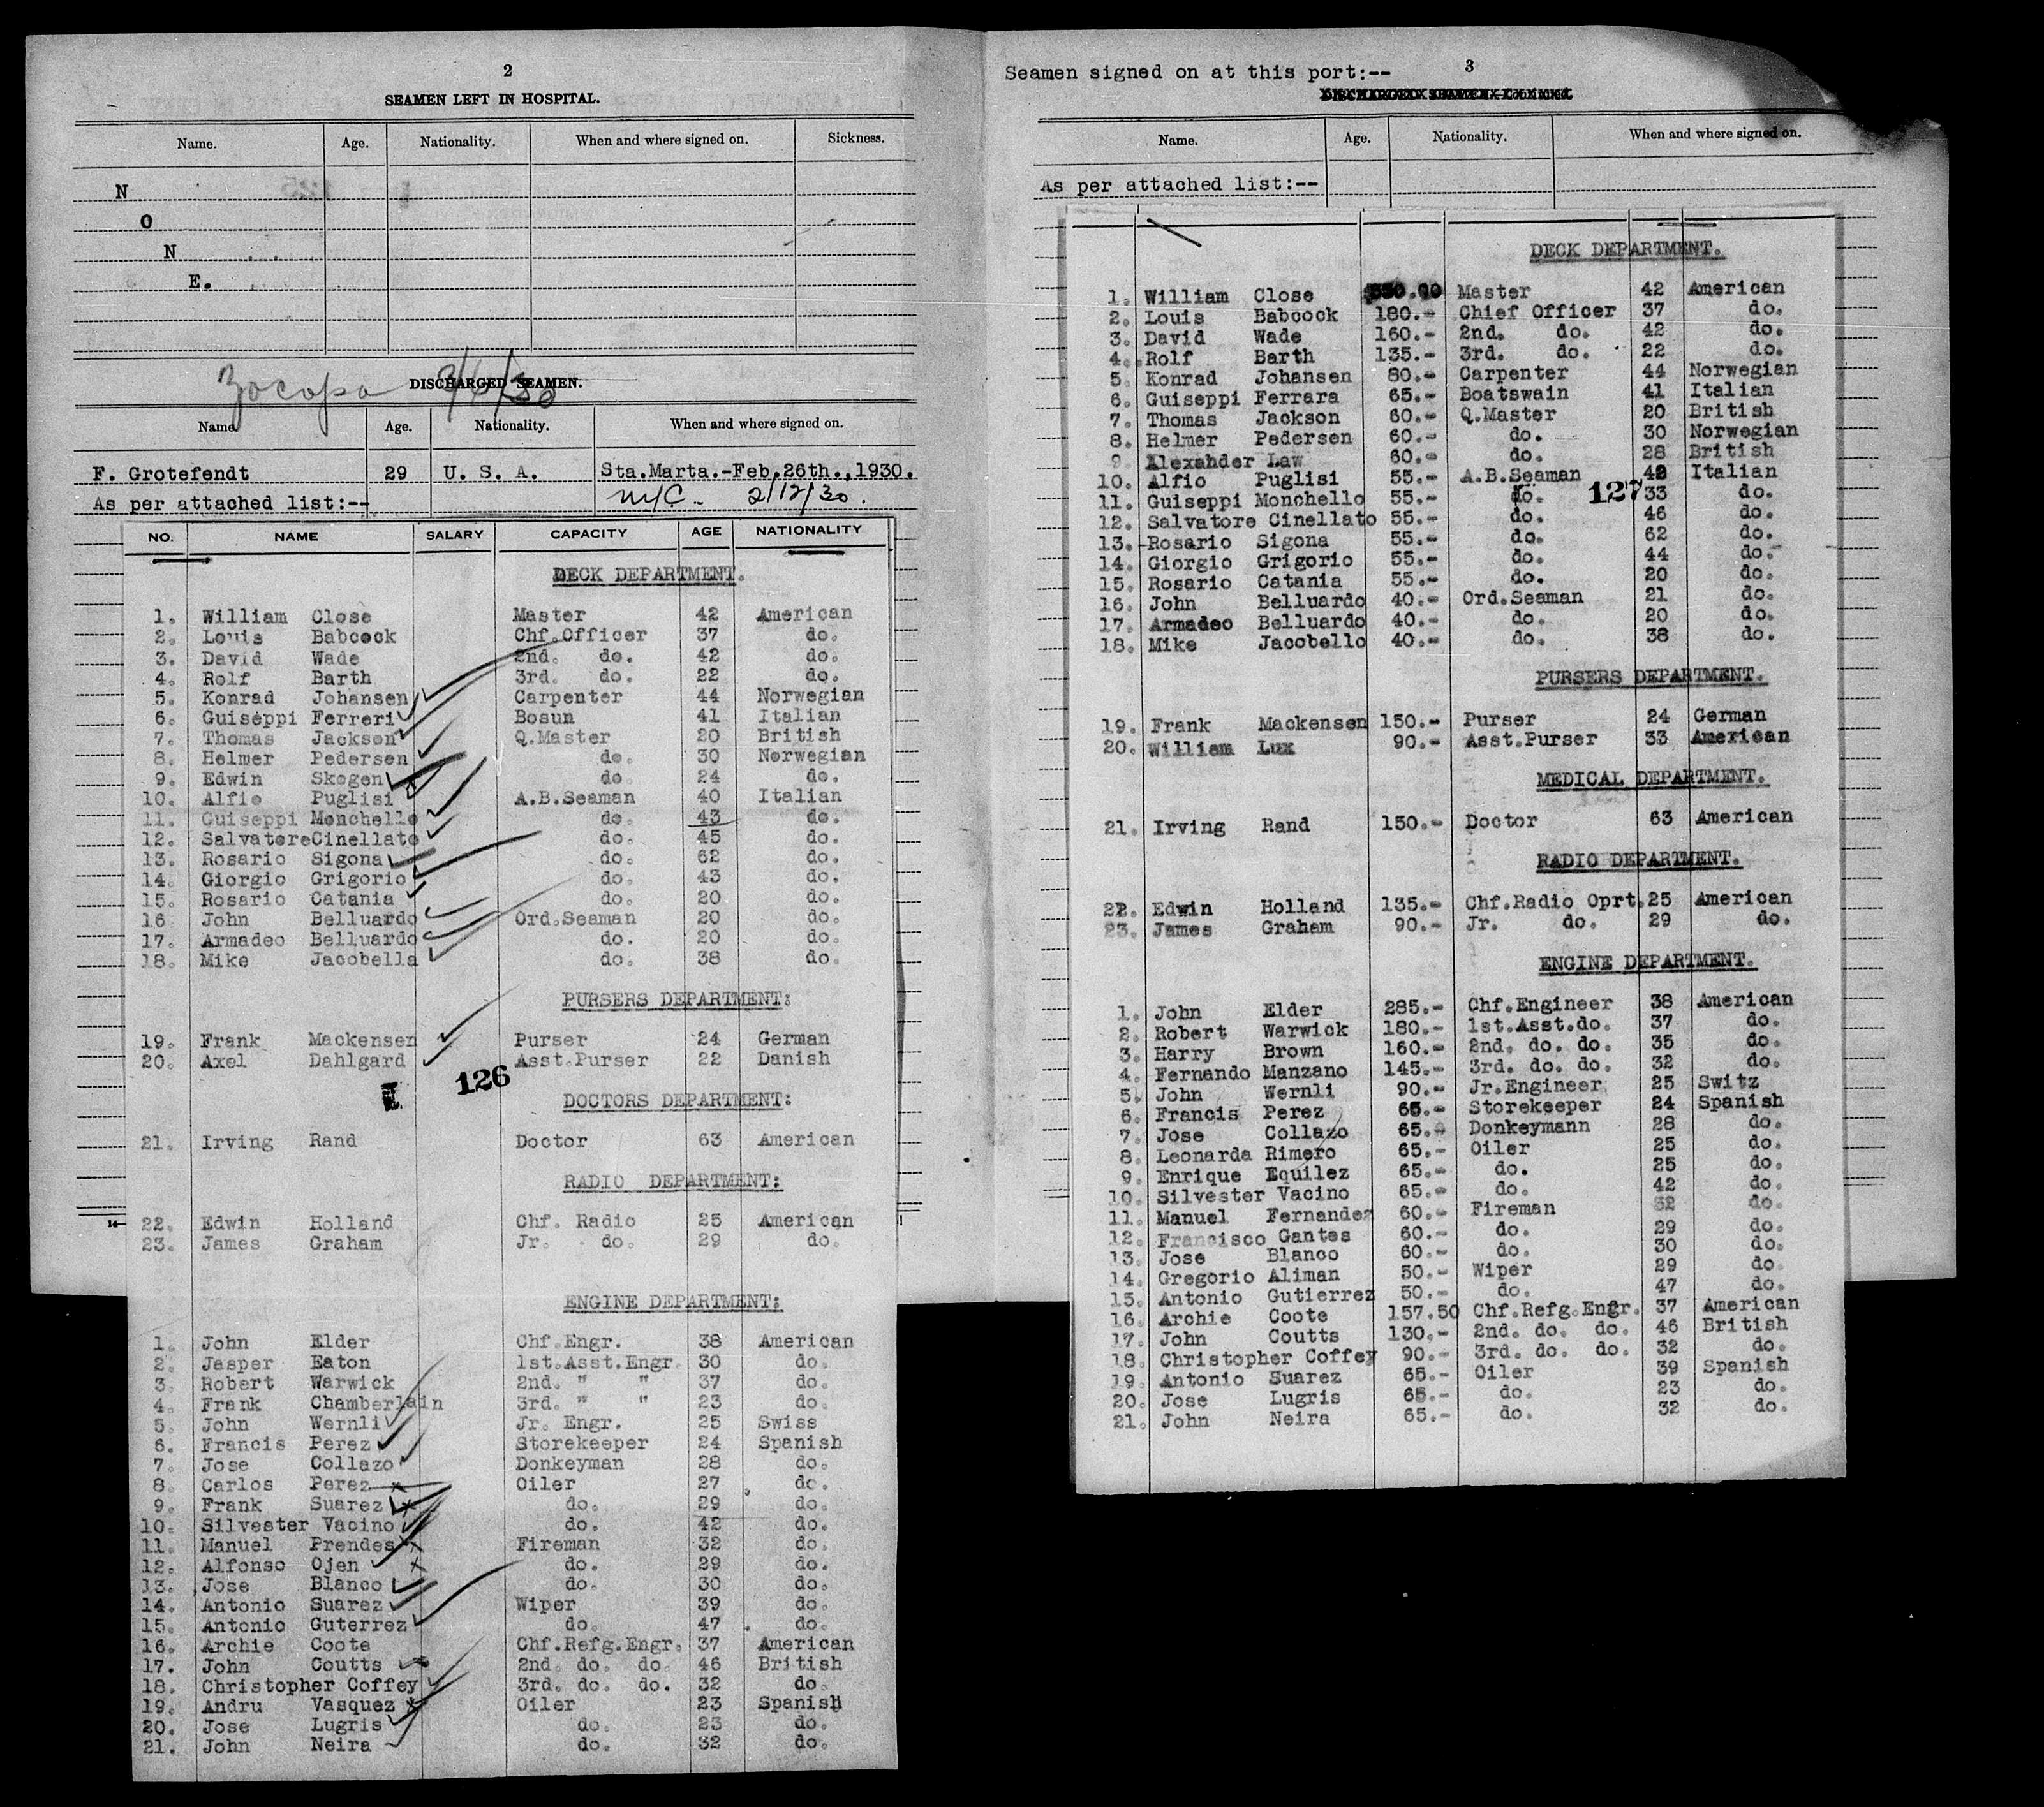 2
SEAMEN LEFT IN HOSPITAL.
Name. Age. Nationality. When and where signed on. Sickness.
N
O
N
E.
Zacapa 3/6/30
DISCHARGED SEAMEN.
Name. Age. Nationality. When and where signed on.
F. Grotefendt 29 U. S. A. Sta.Marta.-Feb.26th.,1930.
As per attached list:-- N/C- 2/12/30.
NO. NAME SALARY CAPACITY AGE NATIONALITY
DECK DEPARTMENT.
1. William Close Master 42 American
2. Louis Babcock Chf.Officer 37 do.
3. David Wade 2nd. do. 42 do.
4. Rolf Barth 3rd. do. 22 do.
5. Konrad Johansen Carpenter 44 Norwegian
6. Guiseppi Ferreri Bosun 41 Italian
7. Thomas Jackson Q.Master 20 British
8. Helmer Pedersen do. 30 Norwegian
9. Edwin Skogen do 24 do.
10. Alfio Puglisi A.B.Seaman 40 Italian
11. Guiseppi Monchello do. 43 do.
12. SalvatoreCinellato do. 45 do.
13. Rosario Sigona do. 62 do.
14. Giorgio Grigorio do. 43 do.
15. Rosario Catania do. 20 do.
16 John Belluardo Ord.Seaman 20 do.
17. Armadeo Belluardo do. 20 do.
18. Mike Jacobella do. 38 do.
PURSERS DEPARTMENT:
19. Frank Mackensen Purser 24 German
20. Axel Dahlgard Asst.Purser 22 Danish
126
DOCTORS DEPARTMENT:
21. Irving Rand Doctor 63 American
RADIO DEPARTMENT:
22. Edwin Holland Chf. Radio 25 American
23. James Graham Jr. do. 29 do.
14-
ENGINE DEPARTMENT:
1. John Elder Chf.Engr. 38 American
2. Jasper Eaton 1st.Asst.Engr. 30 do.
3. Robert Warwick 2nd. " " 37 do.
4. Frank Chamberlain 3rd. " " 23 do.
5. John Wernli Jr. Engr. 25 Swiss
6. Francis Perez Storekeeper 24 Spanish
7. Jose Collazo Donkeyman 28 do.
8. Carlos Perez Oiler 27 do.
9. Frank Suarez do. 29 do.
10. Silvester Vacino do. 42 do.
11. Manuel Prendes Fireman 32 do.
12. Alfonso Ojen do. 29 do.
13. Jose Blanco do. 30 do.
14. Antonio Suarez Wiper 39 do.
15. Antonio Guterrez do. 47 do.
16. Archie Coote Chf.Refg.Engr. 37 American
17. John Coutts 2nd. do. do. 46 British
18. Christopher Coffey 3rd. do. do. 32 do.
19. Andru Vasquez Oiler 23 Spanish
20. Jose Lugris do. 23 do.
21. John Neira do. 32 do.
Seamen signed on at this port:-- 3
DISCHARGED SEAMEN—Continued.
Name. Age. Nationality. When and where signed on.
As per attached list:--
DECK DEPARTMENT.
1. William Close Master 42 American
2. Louis Babcock 180.- Chief Officer 37 do.
3. David Wade 160.- 2nd. do. 42 do.
4. Rolf Barth 135.- 3rd. do. 22 do.
5. Konrad Johansen 80.- Carpenter 44 Norwegian
6. Guiseppi Ferrara 65.- Boatswain 41 Italian
7. Thomas Jackson 60.- Q.Master 20 British
8. Helmer Pedersen 60.- do. 30 Norwegian
9. Alexander Law 60.- do. 28 British
10. Alfio Puglisi 55.- A.B.Seaman Italian
11. Guiseppi Monchello 55.- do. 33 do.
127
12. Salvatore Cinellato 55.- do. 46 do.
13. Rosario Sigona 55.- do. 62 do.
14. Giorgio Grigorio 55.- do. 44 do.
15. Rosario Catania 55.- do. 20 do.
16. John Belluardo 40.- Ord.Seaman 21 do.
17. Armadeo Belluardo 40.- do. 20 do.
18. Mike Jacobello 40.- do. 38 do.
PURSERS DEPARTMENT.
19. Frank Mackensen 150.- Purser 24 German
20. William Lux 90.- Asst.Purser 33 American
MEDICAL DEPARTMENT.
21. Irving Rand 150.- Doctor 63 American
RADIO DEPARTMENT.
22. Edwin Holland 135.- Chf.Radio Oprt. 25 American
23. James Graham 90.- Jr. do. 29 do.
ENGINE DEPARTMENT.
1. John Elder 285.- Chf.Engineer 38 American
2. Robert Warwick 180.- 1st.Asst.do. 37 do.
3. Harry Brown 160.- 2nd. do. do. 35 do.
4. Fernando Manzano 145.- 3rd. do. do. 32 do.
5. John Wernli 90.- Jr.Engineer 25 Switz
6. Francis Perez 65.- Storekeeper 24 Spanish
7. Jose Collazo 65.- Donkeymann 28 do.
8. Leonarda Rimero 65.- Oiler 25 do.
9. Enrique Equilez 65.- do. 25 do.
10. Silvester Vacino 65.- do. 42 do.
11. Manuel Fernandez 60.- Fireman 32 do.
12. Francisco Gantes 60.- do. 29 do.
13. Jose Blanco 60.- do. 30 do.
14. Gregorio Aliman 50.- Wiper 29 do
15. Antonio Gutierrez 50.- do. 47 do.
16. Archie Coote 157.50 Chf.Refg.Engr. 37 American
17. John Coutts 130.- 2nd. do. do. 46 British
18. Christopher Coffey 90.- 3rd. do. do. 32 do.
19. Antonio Suarez 65.- Oiler 39 Spanish
20. Jose Lugris 65.- do. 23 do.
21. John Neira 65.- do. 32 do.